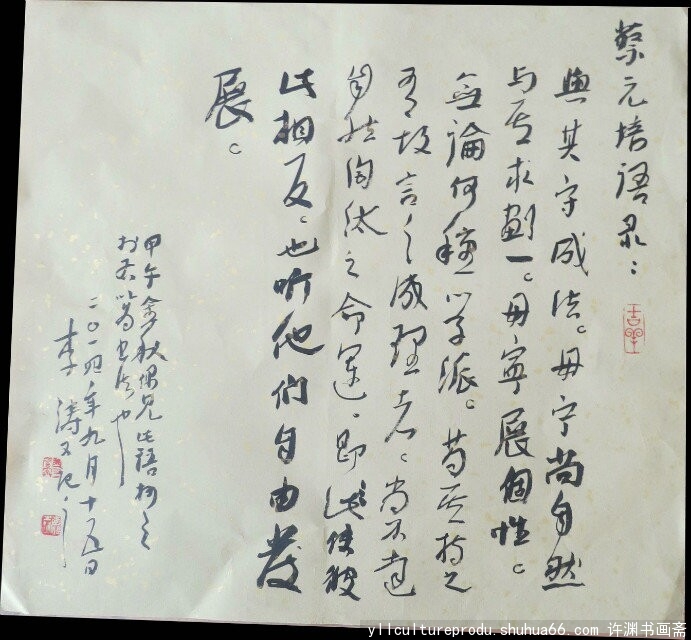 蔡元培语录：
與其守成法。毋宁尚自然
与其求劃一。毋寧展個性。
無論何種学派。苟其持之
有故言之成理者。尚不達
自然淘汰之命運。即使彼
此相反。也听他们自由發
展。
甲午金秋偶见此语抄之
二〇一四年九月十五日
李涛又记
yllcultureprodu.shuhua66.com 许渊书画斋